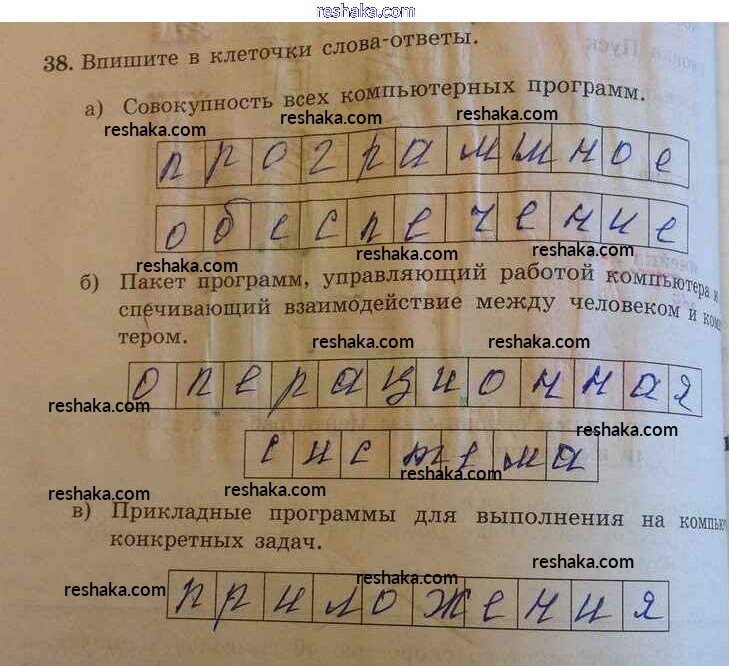 reshaka.com
38. Впишите в клеточки слова-ответы.
а) Совокупность всех компьютерных программ.
reshaka.com reshaka.com reshaka.com
программное
reshaka.com reshaka.com
обеспечение
reshaka.com reshaka.com
б) Пакет программ, управляющий работой компьютера и
спечивающий взаимодействие между человеком и
тером.
reshaka.com reshaka.com
операционная
reshaka.com reshaka.com
reshaka.com
система
reshaka.com reshaka.com
в) Прикладные программы для выполнения на
конкретных задач.
reshaka.com
reshaka.com reshaka.com
приложения
reshaka.com